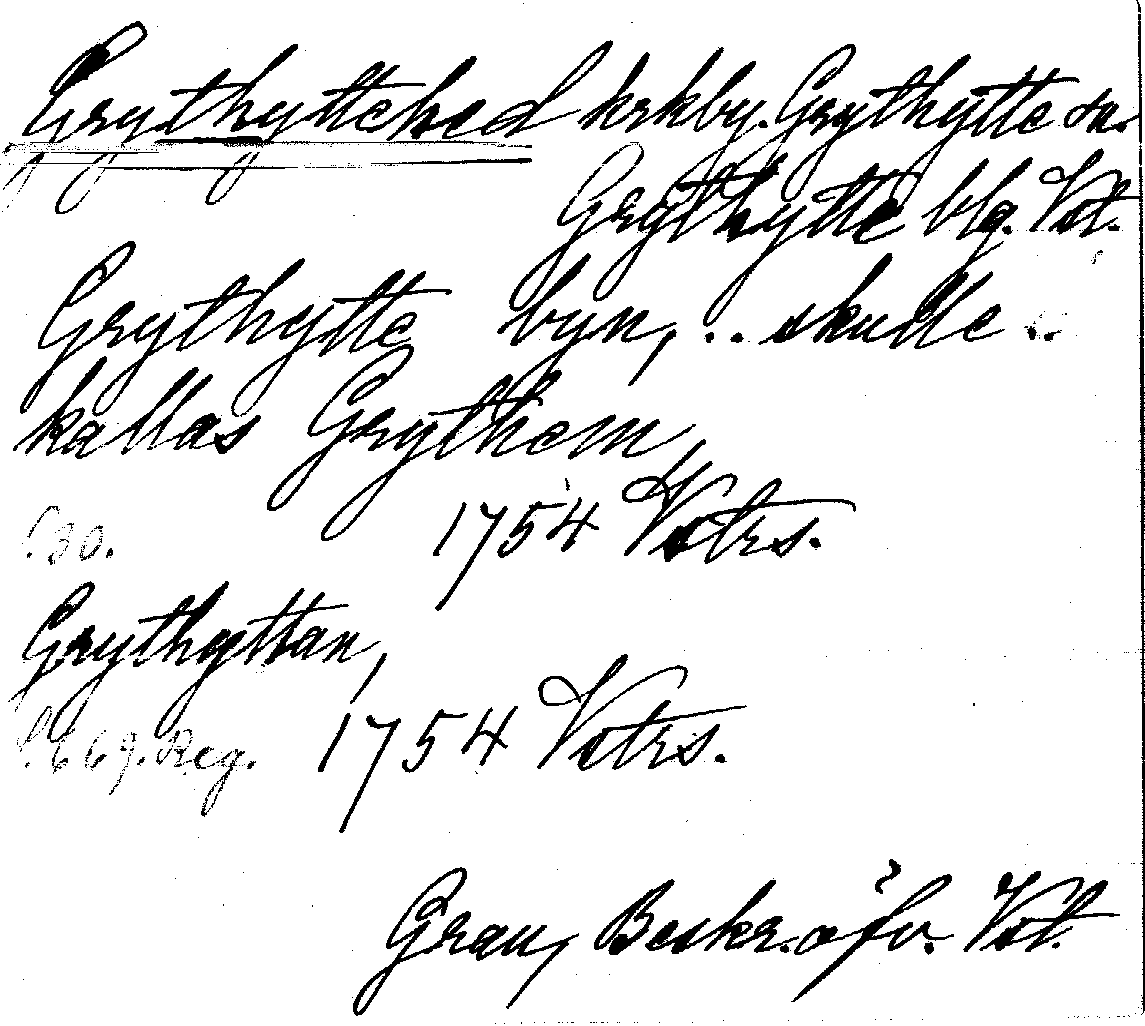 Grythyttehed krkby. Grythytte sn.
Grythytte blg. Vstl.
Grythytte byn, .. skulle ..
kallas Grythem,
S. 30. 1754 Vstrs.
Grythyttan,
S. 669. Reg. 1754 Vstrs.
Grau, Beskr. öfv. Vstl.